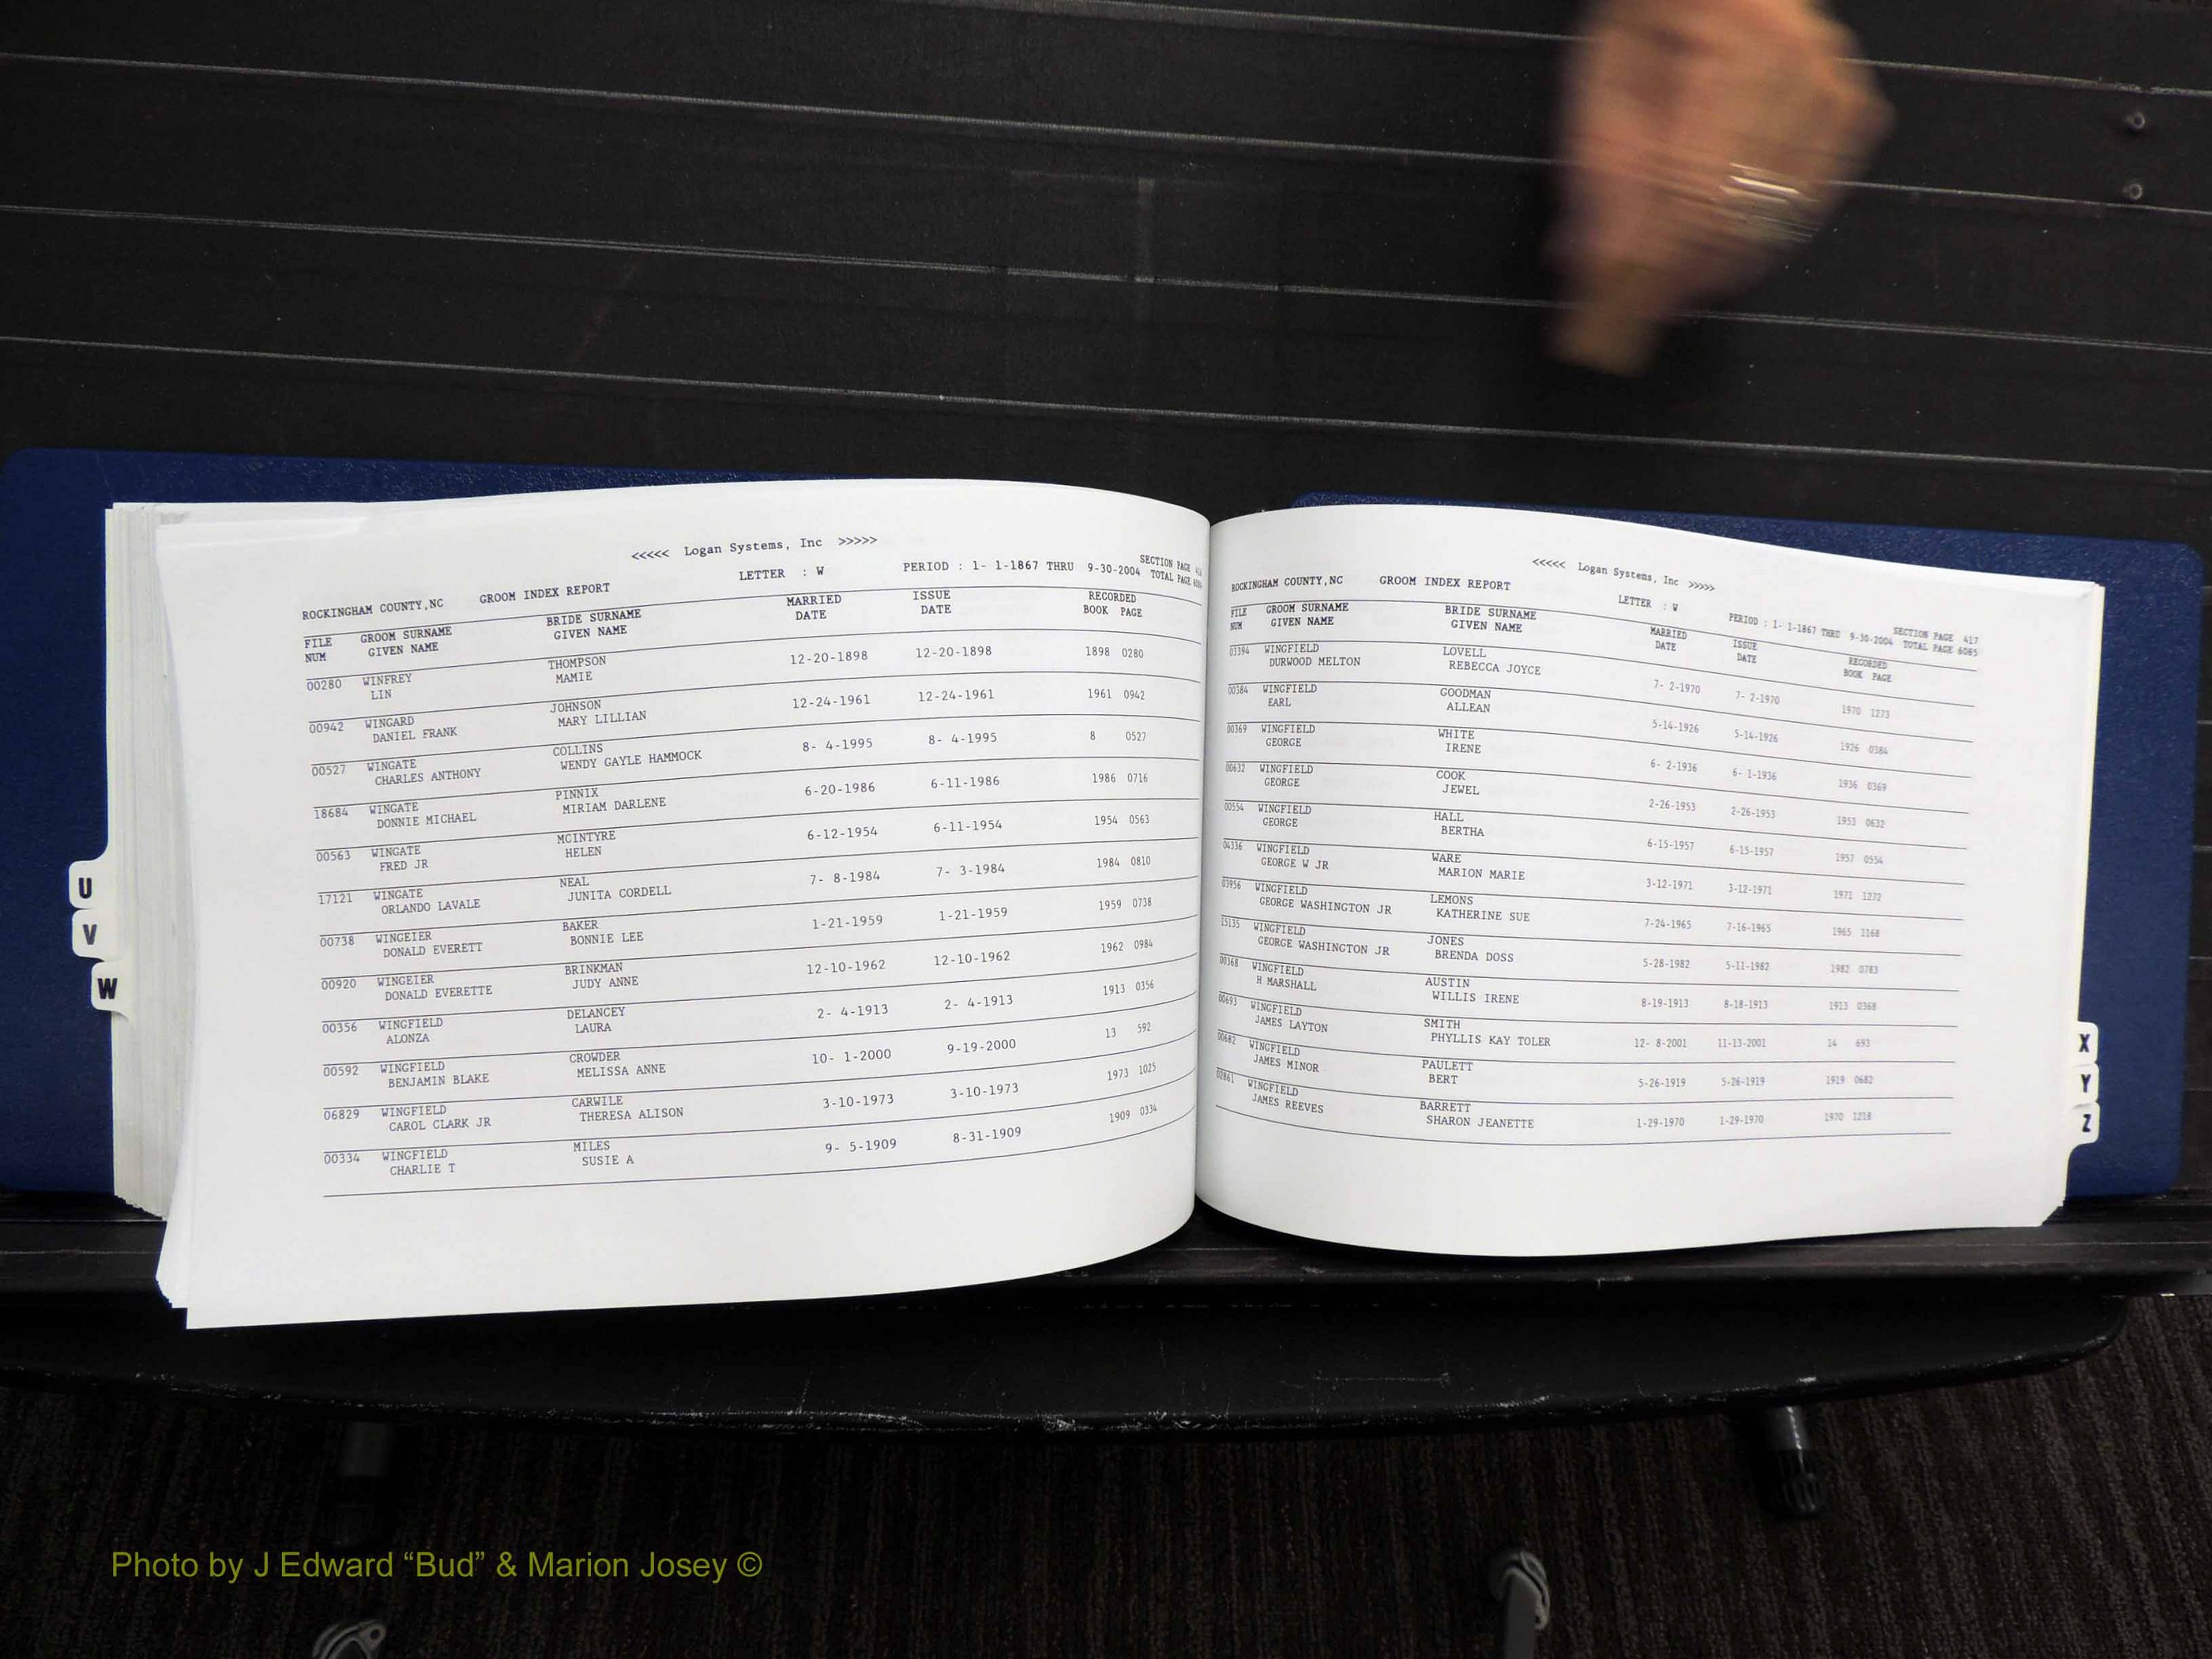 <<<<< Logan Systems, Inc >>>>>
ROCKINGHAM COUNTY,NC GROOM INDEX REPORT LETTER : W PERIOD : 1- 1-1867 THRU 9-30-2004 SECTION PAGE
TOTAL PAGE
FILE GROOM SURNAME BRIDE SURNAME MARRIED ISSUE RECORDED
NUM GIVEN NAME GIVEN NAME DATE DATE BOOK PAGE
00280 WINFREY THOMPSON 12-20-1898 12-20-1898 1898 0280
LIN MAMIE
00942 WINGARD JOHNSON 12-24-1961 12-24-1961 1961 0942
DANIEL FRANK MARY LILLIAN
00527 WINGATE COLLINS 8- 4-1995 8- 4-1995 8 0527
CHARLES ANTHONY WENDY GAYLE HAMMOCK
18684 WINGATE PINNIX 6-20-1986 6-11-1986 1986 0716
DONNIE MICHAEL MIRIAM DARLENE
00563 WINGATE MCINTYRE 6-12-1954 6-11-1954 1954 0563
FRED JR HELEN
17121 WINGATE NEAL 7- 8-1984 7- 3-1984 1984 0810
ORLANDO LAVALE JUNITA CORDELL
00738 WINGEIER BAKER 1-21-1959 1-21-1959 1959 0738
DONALD EVERETT BONNIE LEE
00920 WINGEIER BRINKMAN 12-10-1962 12-10-1962 1962 0984
DONALD EVERETTE JUDY ANNE
00356 WINGFIELD DELANCEY 2- 4-1913 2- 4-1913 1913 0356
ALONZA LAURA
00592 WINGFIELD CROWDER 10- 1-2000 9-19-2000 13 592
BENJAMIN BLAKE MELISSA ANNE
06829 WINGFIELD CARWILE 3-10-1973 3-10-1973 1973 1025
CAROL CLARK JR THERESA ALISON
00334 WINGFIELD MILES 9- 5-1909 8-31-1909 1909 0334
CHARLIE T SUSIE A
U
V
W
<<<<< Logan Systems, Inc >>>>>
ROCKINGHAM COUNTY,NC GROOM INDEX REPORT LETTER : W PERIOD : 1- 1-1867 THRU 9-30-2004 SECTION PAGE 417
TOTAL PAGE 6085
FILE GROOM SURNAME BRIDE SURNAME MARRIED ISSUE RECORDED
NUM GIVEN NAME GIVEN NAME DATE DATE BOOK PAGE
03394 WINGFIELD LOVELL 7- 2-1970 7- 2-1970 1970 1273
DURWOOD MELTON REBECCA JOYCE
00384 WINGFIELD GOODMAN 5-14-1926 5-14-1926 1926 0384
EARL ALLEAN
00369 WINGFIELD WHITE 6- 2-1936 6- 1-1936 1936 0369
GEORGE IRENE
00632 WINGFIELD COOK 2-26-1953 2-26-1953 1953 0632
GEORGE JEWEL
00554 WINGFIELD HALL 6-15-1957 6-15-1957 1957 0554
GEORGE BERTHA
04336 WINGFIELD WARE 3-12-1971 3-12-1971 1971 1272
GEORGE W JR MARION MARIE
03956 WINGFIELD LEMONS 7-24-1965 7-16-1965 1965 1168
GEORGE WASHINGTON JR KATHERINE SUE
15135 WINGFIELD JONES 5-28-1982 5-11-1982 1982 0783
GEORGE WASHINGTON JR BRENDA DOSS
00368 WINGFIELD AUSTIN 8-19-1913 8-18-1913 1913 0368
H MARSHALL WILLIS IRENE
00693 WINGFIELD SMITH 12- 8-2001 11-13-2001 14 693
JAMES LAYTON PHYLLIS KAY TOLER
00682 WINGFIELD PAULETT 5-26-1919 5-26-1919 1919 0682
JAMES MINOR BERT
02861 WINGFIELD BARRETT 1-29-1970 1-29-1970 1970 1218
JAMES REEVES SHARON JEANETTE
X
Y
Z
Photo by J Edward “Bud” & Marion Josey ©